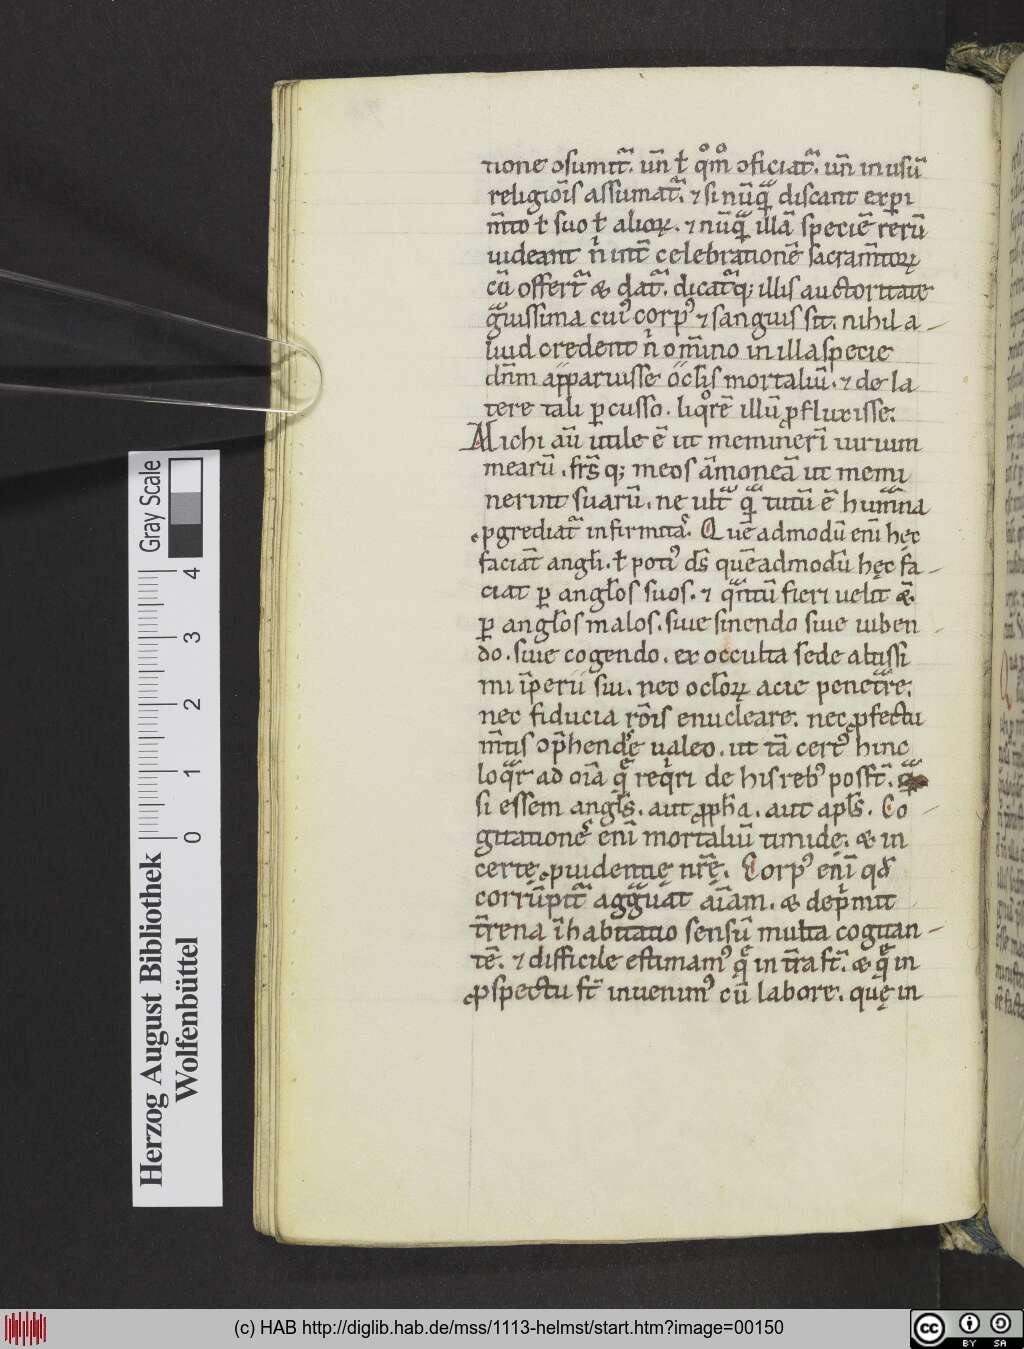 tione ↄsumit᷑. uñ ł qͦm̊ ↄficiat᷑. uñ in usū
religiōis assumat᷑. ⁊ si nūqᷓ discant exp̲i
m̄to ł suo ł alioꝝ. ⁊ nūqᷓ illā speciē rerū
uideant ñ int̄ celebrationē sacram̄toꝝ
cū offert᷑ & dat᷑. dicat᷑q; illis auctoritate
gᷓuissima cuiꝰ corpꝰ ⁊ sanguis sit. nihil a
liud credent ñ om̄ino in illa specie
dn̄m apparuisse ocl̄is mortaliū. ⁊ de la
tere tali ꝑcusso. liqͦrē illū ꝓfluxisse.
Michi aū utile ē ut meminerī uirium
mearū. frs̄q; meos āmoneā ut memi
nerint suarū. ne ult᷑ qᷓ tutū ē humāna
ꝓgrediat᷑ infirmitas. Quēadmodū enī hęc
faciāt angli. ł potiꝰ ds̄ quēadmodū hęc fa
ciat ꝑ angl̄os suos. ⁊ qᷓntū fieri uelit &̄
ꝑ angl̄os malos. siue sinendo siue iuben
do. siue cogendo. ex occulta sede altissi
mi īperii sui. nec ocl̄oꝝ acie penet᷑re.
nec fiducia rōis enucleare. nec ꝓfectu
m̄tis ↄp̄hendͤe ualeo. ut tā certꝰ hinc
loqᷓr ad oīa q̨ reqͥri de his rebꝰ poss̄t. qᷓ
si essem angl̄s. aut ꝓph̄a. aut apl̄s. Co
gitationes enī mortaliū timidę. & in
certę ꝓuidentię nr̄ę. Corpꝰ enī qđ
corrūpit᷑ aggᷓuat aīam. & dep̍mit
t̄rena īhabitatio sensū multa cogitan
tē. ⁊ difficile estimamꝰ q̨ in t̄ra st̄. & q̨ in
ꝓspectu st̄ inuenimꝰ cū labore. quę in
Gray Scale
4
3
2
1
0
Herzog August Bibliothek
Wolfenbüttel
(c) HAB http://diglib.hab.de/mss/1113-helmst/start.htm?image=00150
cc
BY SA